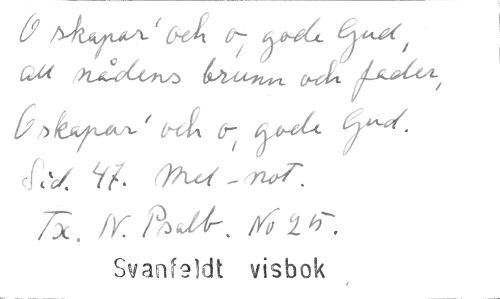 O skapar' och o, gode Gud,
all nådens brunn och fader,
O skapar' och o, gode Gud.
Sid. 47. Mel-not.
Tx. N. Psalb. No 25.
Svanfeldt visbok